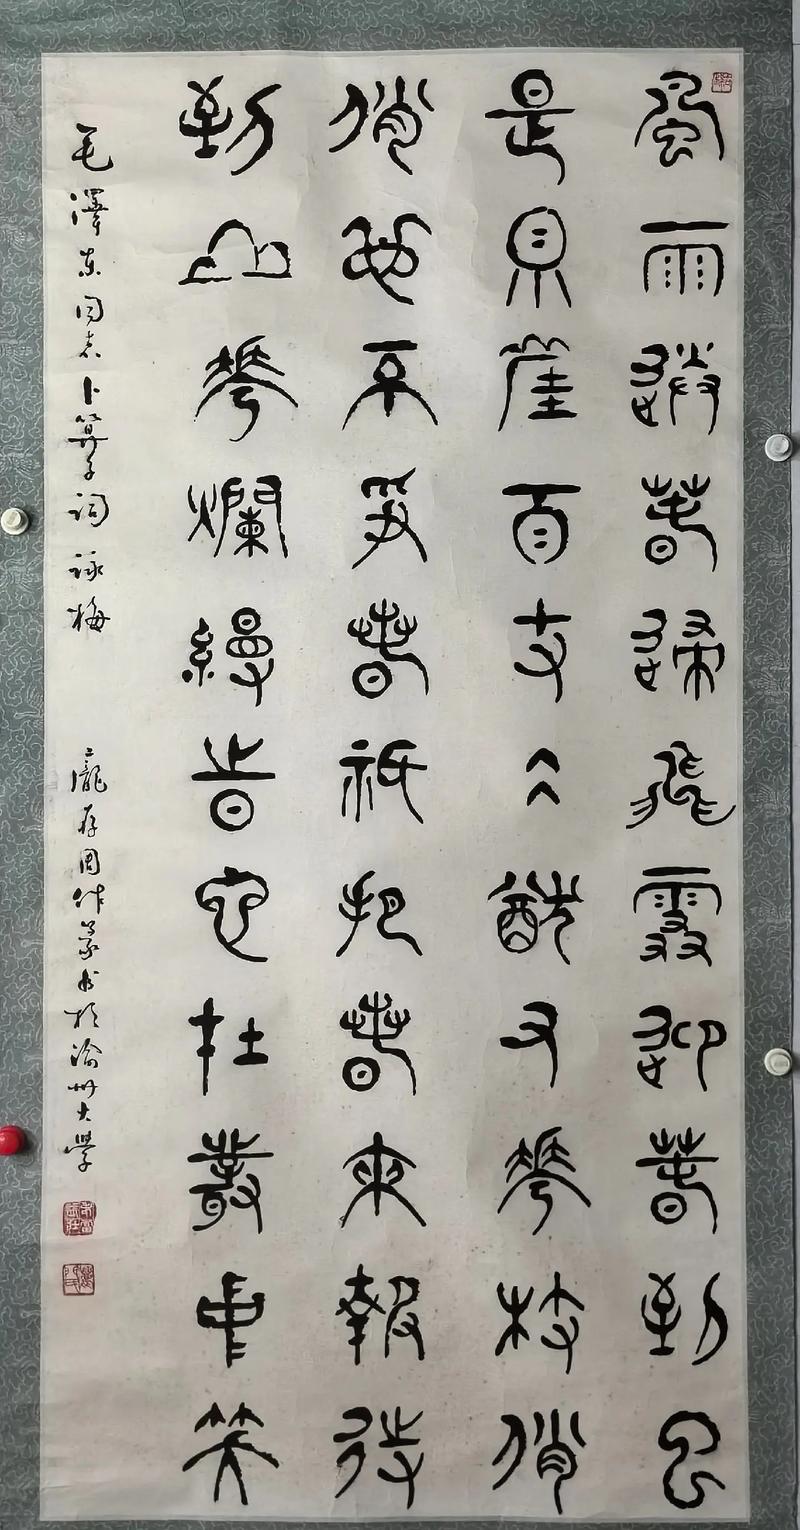 風雨送春歸飛雪迎春到已
是県崖百丈仌猷又華枝俏
俏也不爭春祇把春來報待
到山華爛縵時它在叢中笑
毛澤東同志卜算子詞詠梅 龐存周作篆書於渝州大學